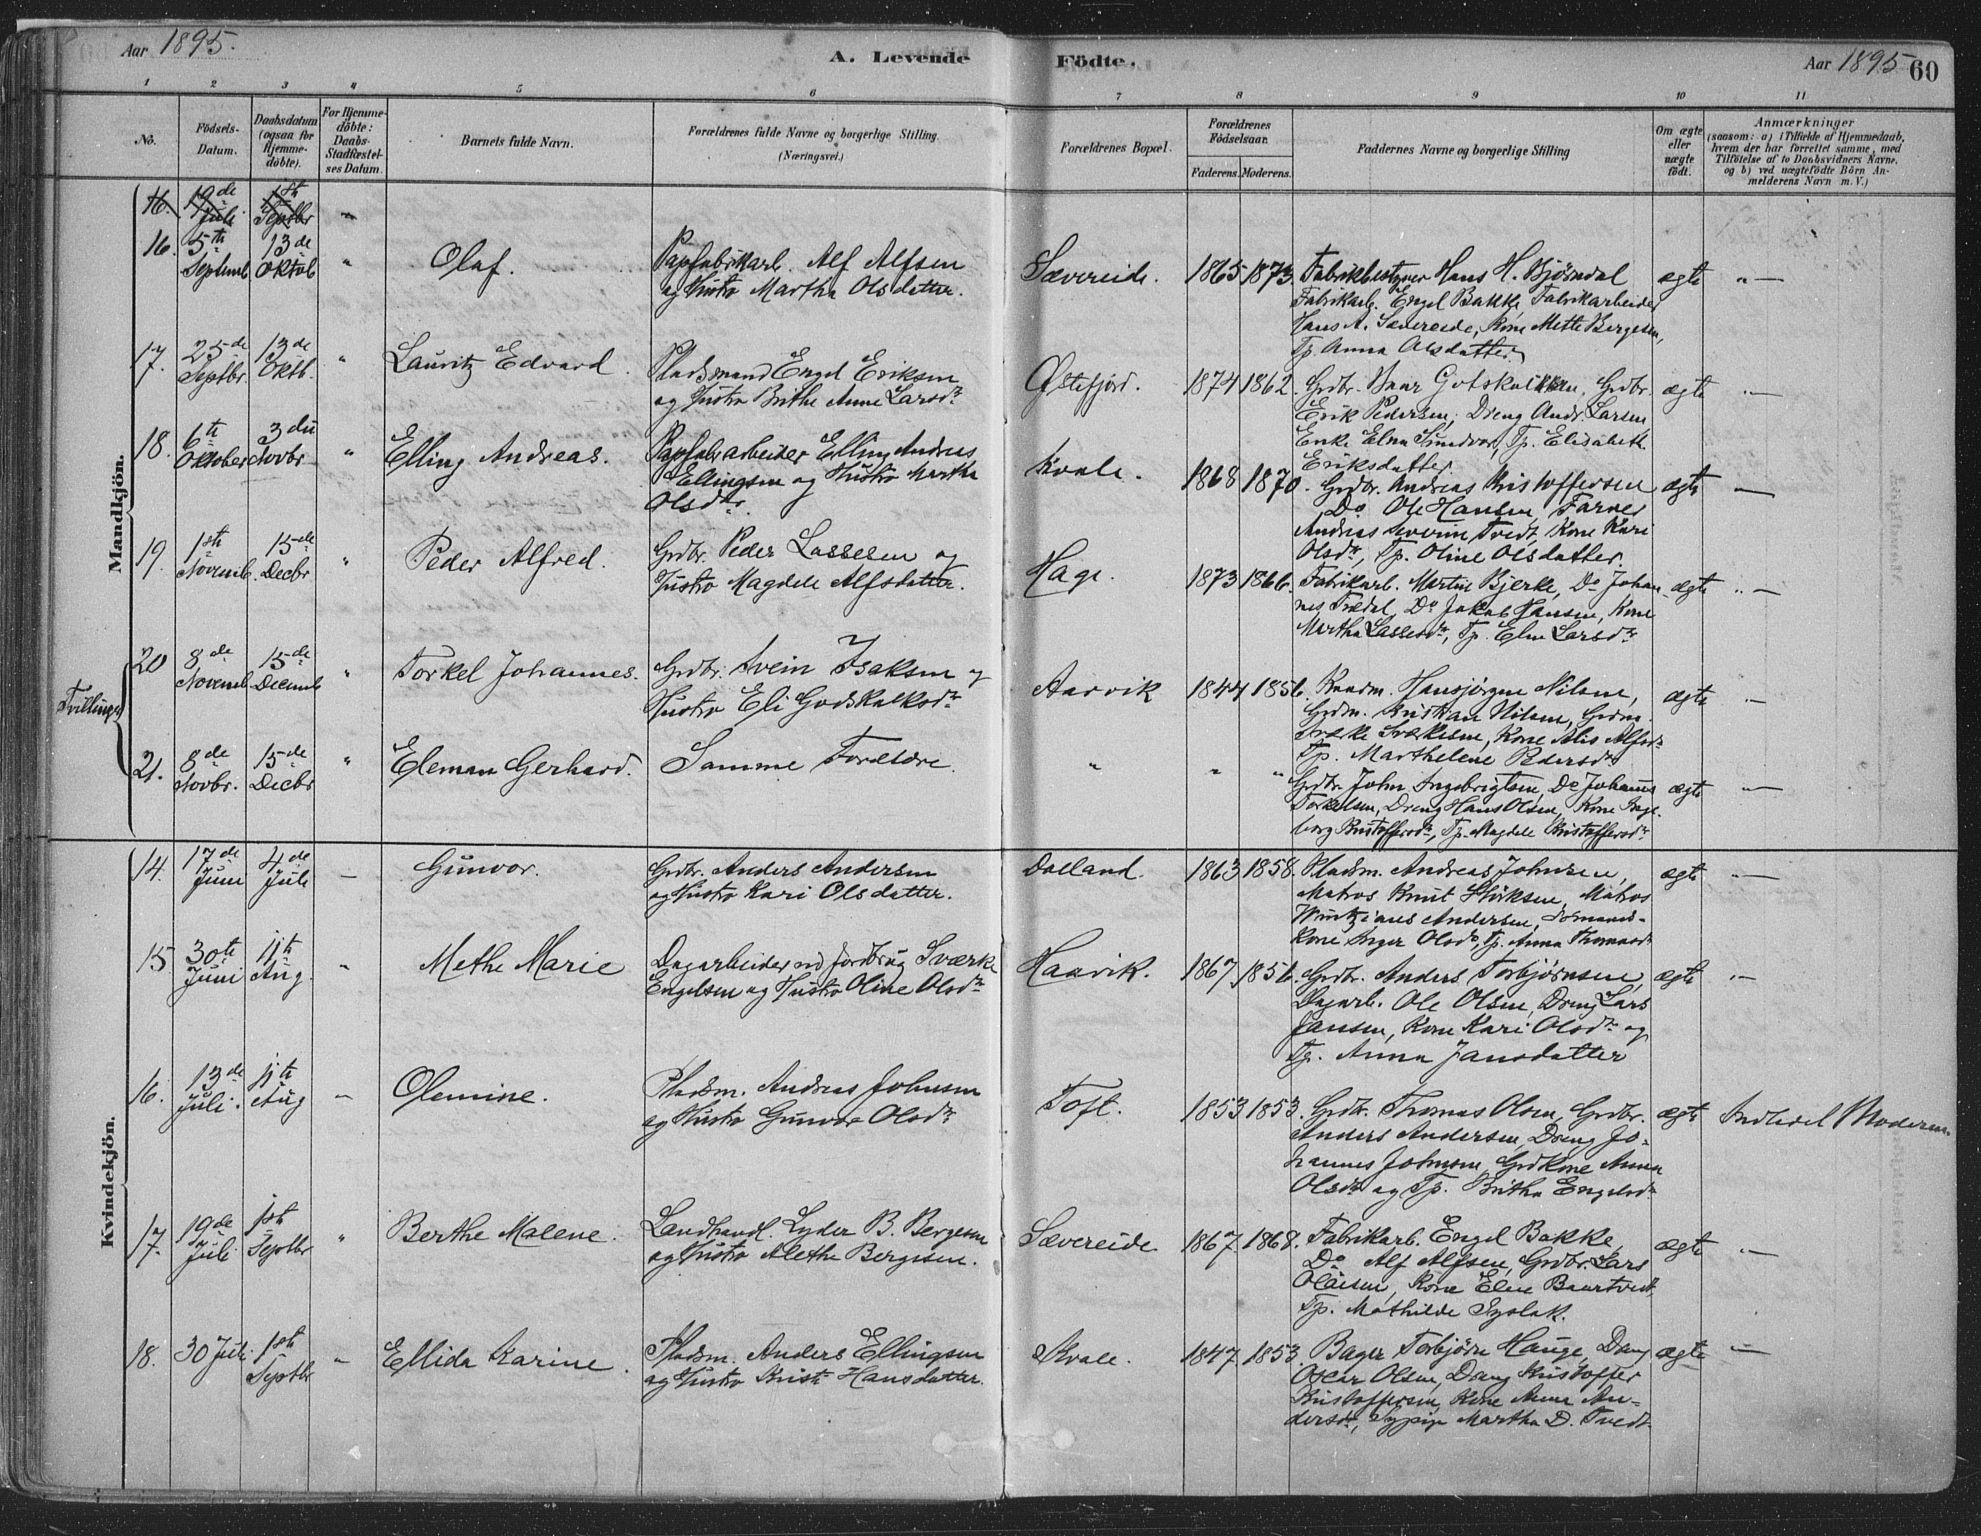 Aar 1895.
A. Levende
Födte.
Aar 1895
60
1 2 3 4 5 6 7 8 9 10 11
No.
Födsels-
Datum.
Daabsdatum
(ogsaa for
Hjemme-
döbte).
For Hjemme-
döbte:
Daabs-
Stadfæstel-
ses Datum.
Barnets fulde Navn.
Forældrenes fulde Navne og borgerlige Stilling.
(Næringsvei.)
Forældrenes Bopæl.
Forældrenes
Födselsaar.
Faderens. Moderens.
Faddernes Navne og borgerlige Stilling
Om ægte
eller
uægte
födt.
Anmærkninger
(saasom: a) i Tilfælde af Hjemmedaab,
hvem der har forrettet samme, med
Tilföielse af to Daabsvidners Navne,
og b) ved uægtefödte Börn An-
melderens Navn m. V.)
Mandkjön.
16. 19de Juli 1st Septbr
16. 5th Septemb 13de Oktob " Olaf.
Papfabrikarb. Alf Alfsen
og Hustro Martha Olsdatter.
Sævereide. 1865 1873.
Fabrikbestyrer Hans H. Bjørndal
Fabrikarb. Engel Bakke, Fabrikarbeider
Hans A. Sævereide, Kone Mette Bergesen,
Tp. Anna Olsdatter
ægte "—
17. 25de Septbr. 13de Oktb. " Lauritz Edvard.
Pladsmand Engel Eriksen
og Hustro Brithe Anne Larsdtr
Østefjord. 1874 1862.
Grdbr. Gotskalksen, Grdbr.
Erik Pedersen, Dreng Andr. Larsen
Enke Elna Sundvor, Tp. Elisabeth
Eriksdatter.
ægte "—
18. 6th Oktober 3die Novbr. " Elling Andreas.
Papfabrarbeider Elling Andreas
Ellingsen og Hustro Martha
Olsdtr.
Kvale. 1868 1870.
Grdbr. Andreas Kristoffersen
Do Ole Hansen, Farver
Andreas Severin Tvedt, Kone Kari
Olsdtr, Tp. Oline Olsdatter.
ægte —
19. 1ste Novemb. 15de Decbr " Peder Alfred.
Grdbr. Peder Lassesen og
Hustro Magdele Alfsdatter.
Hage. 1873 1866.
Fabrikarb. Martin Bjerke, Do Johan-
nes Trædal, Do Jakob Hansen, Kone
Martha Lassesdtr, Tp. Elen Larsdtr
ægte "—
Tvillinger
20 8de Novemb 15de Decemb " Torkel Johannes.
Grdbr. Svein Isaksen og
Hustro Eli Godskalksdtr
Aarvik 1844 1856.
Kaardm. Hansjørgen Nilsen,
Grdm. Kristian Nilsen, Grdm.
Kone Alis Alfsdtr
Tp. Marthelene Pedersdtr
ægte "—
21. 8de Novbr. 15de Decbr " Eleman Gerhard.
Samme Forældre.
" " "
Grdbr. John Ingebrigtsen, Do Johannes
Torkelsen, Dreng Hans Olsen, Kone Inge-
borg Kristoffersdtr, Tp. Magdele Kristoffersdtr
ægte "—
Kvindekjön.
14. 17de Juni 4de Juli — Gunvor.
Grdbr. Anders Andersen
og Hustro Kari Olsdatter.
Dalland. 1863 1858.
Pladsm. Andreas Johnsen,
Matros Knut Matros
Andersen,
Kone Inger Olsdtr, Tp. Anna Thomasdtr
ægte "—
15 30te Juni 11th Aug. " Methe Marie
Dagarbeider ved Jordbrug Sværke
Engelsen og Hustro Oline Olsdtr
Haavik. 1867 1856.
Grdbr. Anders Torbjørnsen,
Dagarb. Ole Olsen, Dreng Lars
Jansen, Kone Kari Olsdtr og
Tp. Anna Jansdatter
ægte "—
16. 13de Juli. 11th Aug — Olemine.
Pladsm. Andreas Johnsen
og Hustro Gunvor Olsdtr
Toft. 1853 1853.
Grdbr. Thomas Olsen, Grdbr.
Anders Andersen, Dreng Jo-
hannes Johnsen, Grdkone Anna
Olsdtr og Tp. Britha Engelsdtr
ægte Indledet Moderen
17. 19de Juli 1st Septbr " Berthe Malene.
Landhandl. Lyder B. Bergesen
og Hustro Alethe Bergesen.
Sævereide 1867 1868.
Fabrikarb. Engel Bakke,
Do Alf Alfsen, Grdbr. Lars
Olaisen, Kone Elen Baartvedt,
Tp. Mathilde Syslak.
ægte "—
18. 30 Juli 1st Septbr " Ellida Karine.
Pladsm. Anders Ellingsen
og Hustro Krist. Hansdatter.
Kvale. 1847 1853.
Bager Torbjørn Hauge, Dreng
Oscar Olsen, Dreng Kristoffer
Kristoffersen, Kone Anna An-
dersdtr, Sypige Martha D. Tvedt
ægte "—